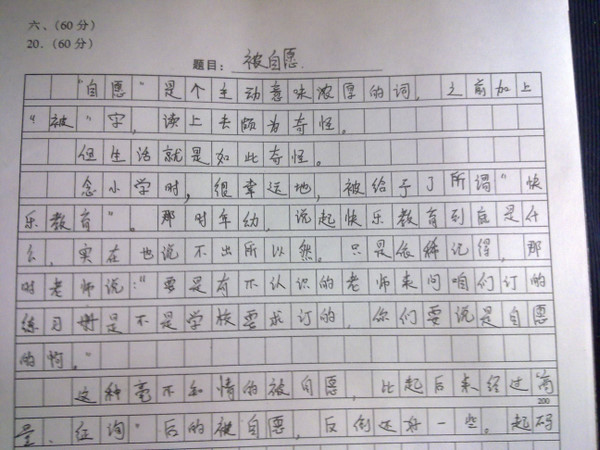 六、(60分)
20.(60分)
题目: 被自愿
“自愿”是个主动意味浓厚的词，之前加上
“被”字，读上去颇为奇怪。
但生活就是如此奇怪。
念小学时，很幸运地，被给予了所谓“快
乐教育”。那时年幼，说起快乐教育到底是什
么，实在也说不出所以然。只是依稀记得，那
时老师说:“要是有不认识的老师来问咱们订的
练习册是不是学校要求订的，你们要说是自愿
的啊。”
这种毫不知情的被自愿，比起后来经过商
200
量、征询”后的被自愿，反倒还好一些。起码